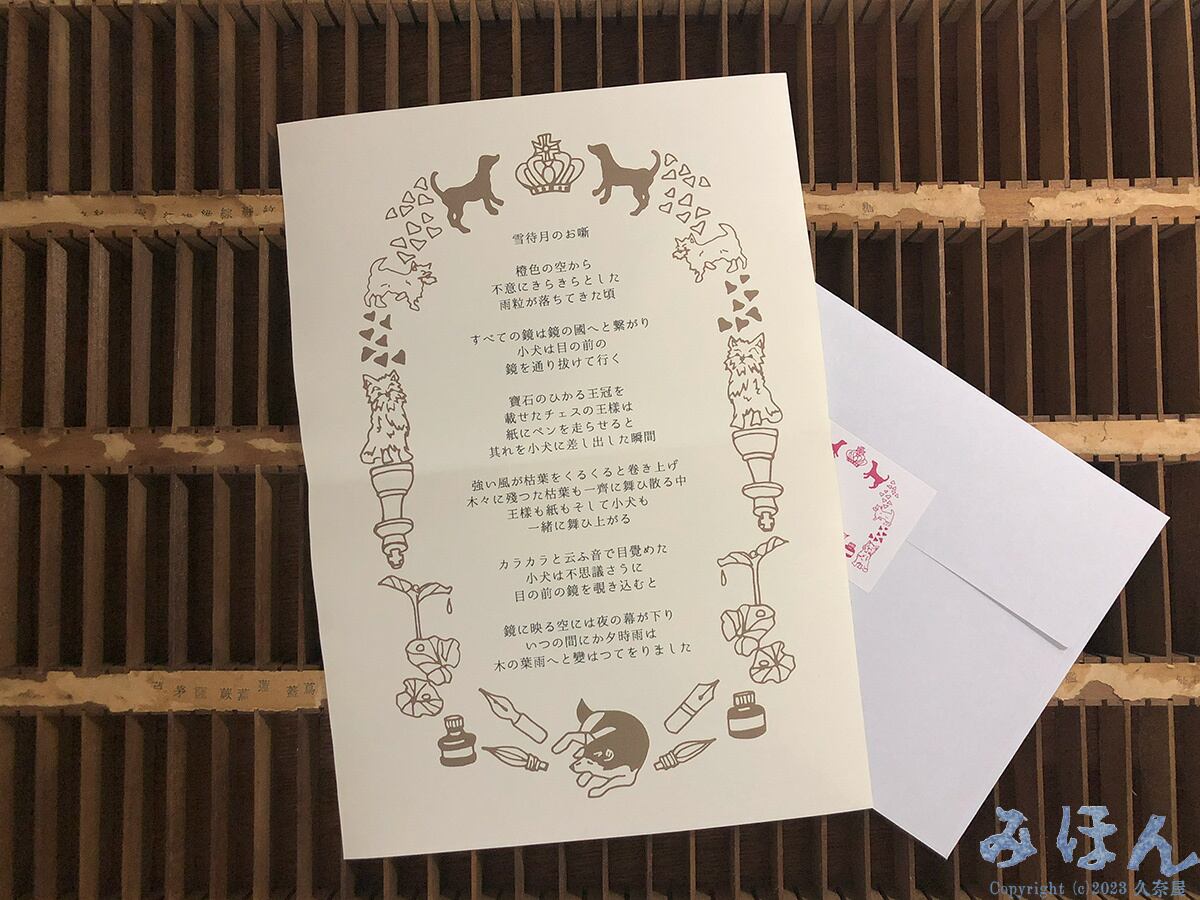 雪待月のお噺
橙色の空から
不意にきらきらとした
雨粒が落ちてきた頃
すべての鏡は鏡の國へと繋がり
小犬は目の前の
鏡を通り抜けて行く
寶石のひかる王冠を
載せたチェスの王様は
紙にペンを走らせると
其れを小犬に差し出した瞬間
強い風が枯葉をくるくると巻き上げ
木々に殘つた枯葉も一齊に舞ひ散る中
王様も紙もそして小犬も
一緒に舞ひ上がる
カラカラと云ふ音で目覺めた
小犬は不思議さうに
目の前の鏡を覗き込むと
鏡に映る空には夜の幕が下り
いつの間にか夕時雨は
木の葉雨へと變はつてをりました
みほん
Copyright (c)2023 久奈屋